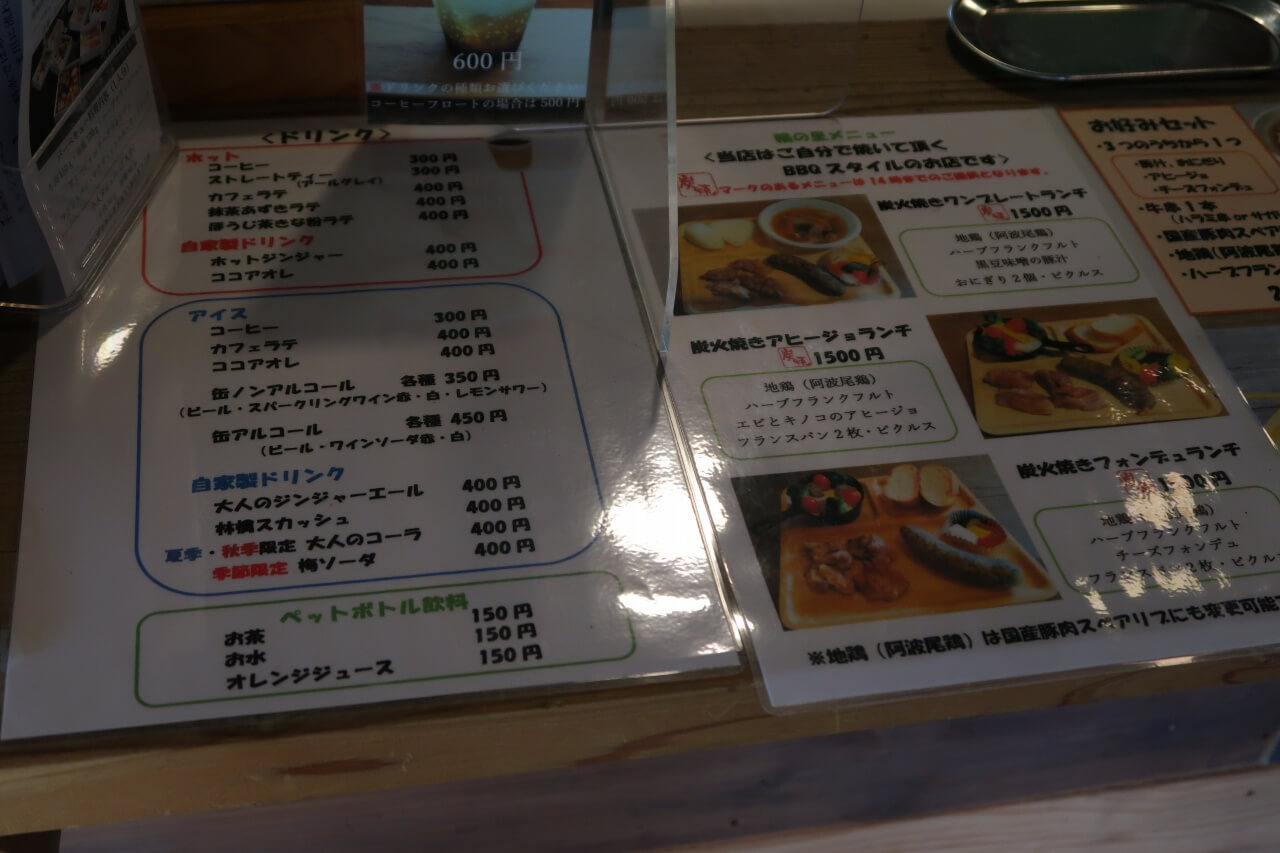 600円
ドリンクの種類お選びください
コーヒーフロートの場合は500円
<ドリンク>
ホット
コーヒー 300円
ストレートティー 300円
(アールグレイ)
カフェラテ 400円
抹茶あずきラテ 400円
ほうじ茶きな粉ラテ 400円
自家製ドリンク
ホットジンジャー 400円
ココアオレ 400円
アイス
コーヒー 300円
カフェラテ 400円
ココアオレ 400円
缶ノンアルコール 各種 350円
(ビール・スパークリングワイン赤・白・レモンサワー)
缶アルコール 各種 450円
(ビール・ワインソーダ赤・白)
自家製ドリンク
大人のジンジャーエール 400円
林檎スカッシュ 400円
夏季・秋季限定 大人のコーラ 400円
季節限定 梅ソーダ 400円
ペットボトル飲料
お茶 150円
お水 150円
オレンジジュース 150円
の里メニュー
<当店はご自分で焼いて頂く
BBQスタイルのお店です>
マークのあるメニューは14時までのご提供となります。
炭火焼きワンプレートランチ
1500円
地鶏(阿波尾鶏)
ハーブフランクフルト
黒豆味噌の豚汁
おにぎり2個・ピクルス
炭火焼きアヒージョランチ
1500円
地鶏(阿波尾鶏)
ハーブフランクフルト
エビとキノコのアヒージョ
フランスパン2枚・ピクルス
炭火焼きフォンデュランチ
地鶏(阿波尾鶏)
ハーブフランクフルト
チーズフォンデュ
フランスパン2枚・ピクル
※地鶏(阿波尾鶏)は国産豚肉スペアリブにも変更可能
お好みセット
・3つのうちから1つ
・豚汁、おにぎり
・アヒージョ
・チーズフォンデュ
・牛串1本
(ハラミ串 or サガリ
・国産豚肉スペア
・地鶏(阿波尾鶏
・ハーブフラン